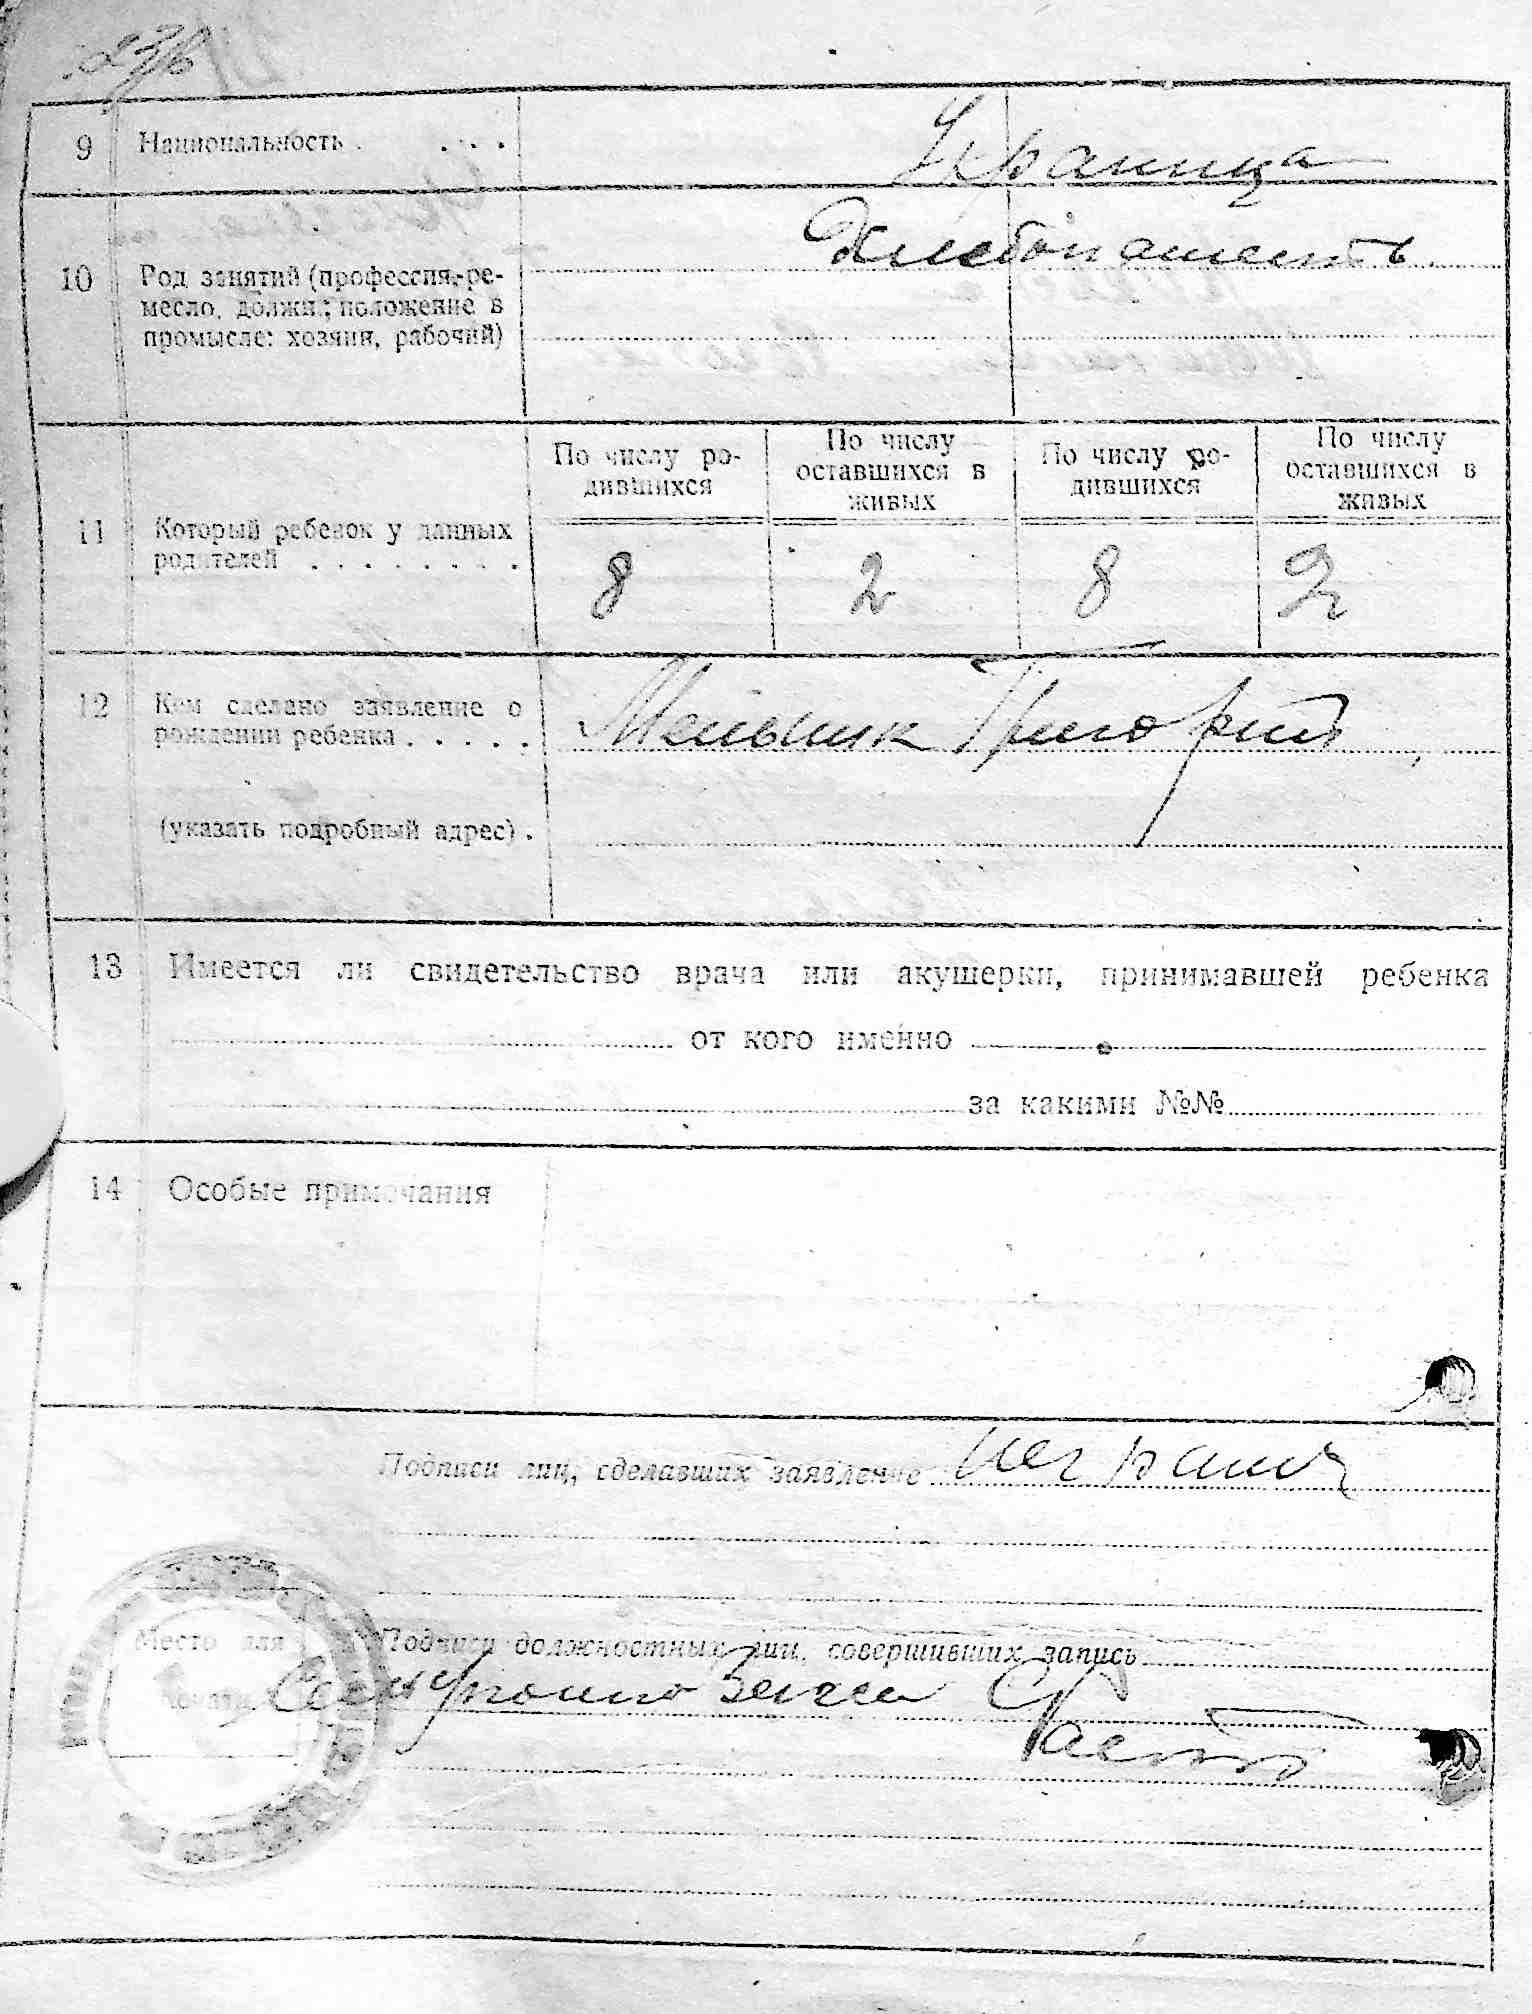 23
9 Национальность . . . . Украинца
10 Род занятий (профессия, ре-
месло, должн.; положение в
промысле: хозяин, рабочий)
Хлебопашеить
По числу ро-
дившихся
По числу
оставшихся в
живых
По числу ро-
дившихся
По числу
оставшихся в
живых
11 Который ребенок у данных
родителей . . . . . . . .
8 2 8 2
12 Кем сделано заявление о
рождении ребенка . . . . .
Мельник Григорий
(указать подробный адрес) .
13 Имеется ли свидетельство врача или акушерки, принимавшей ребенка
от кого именно
за какими №№
14 Особые примечания
Подписи лиц, сделавших заявление неграмот
Место для
печати
Подписи должностных лиц, совершивших запись